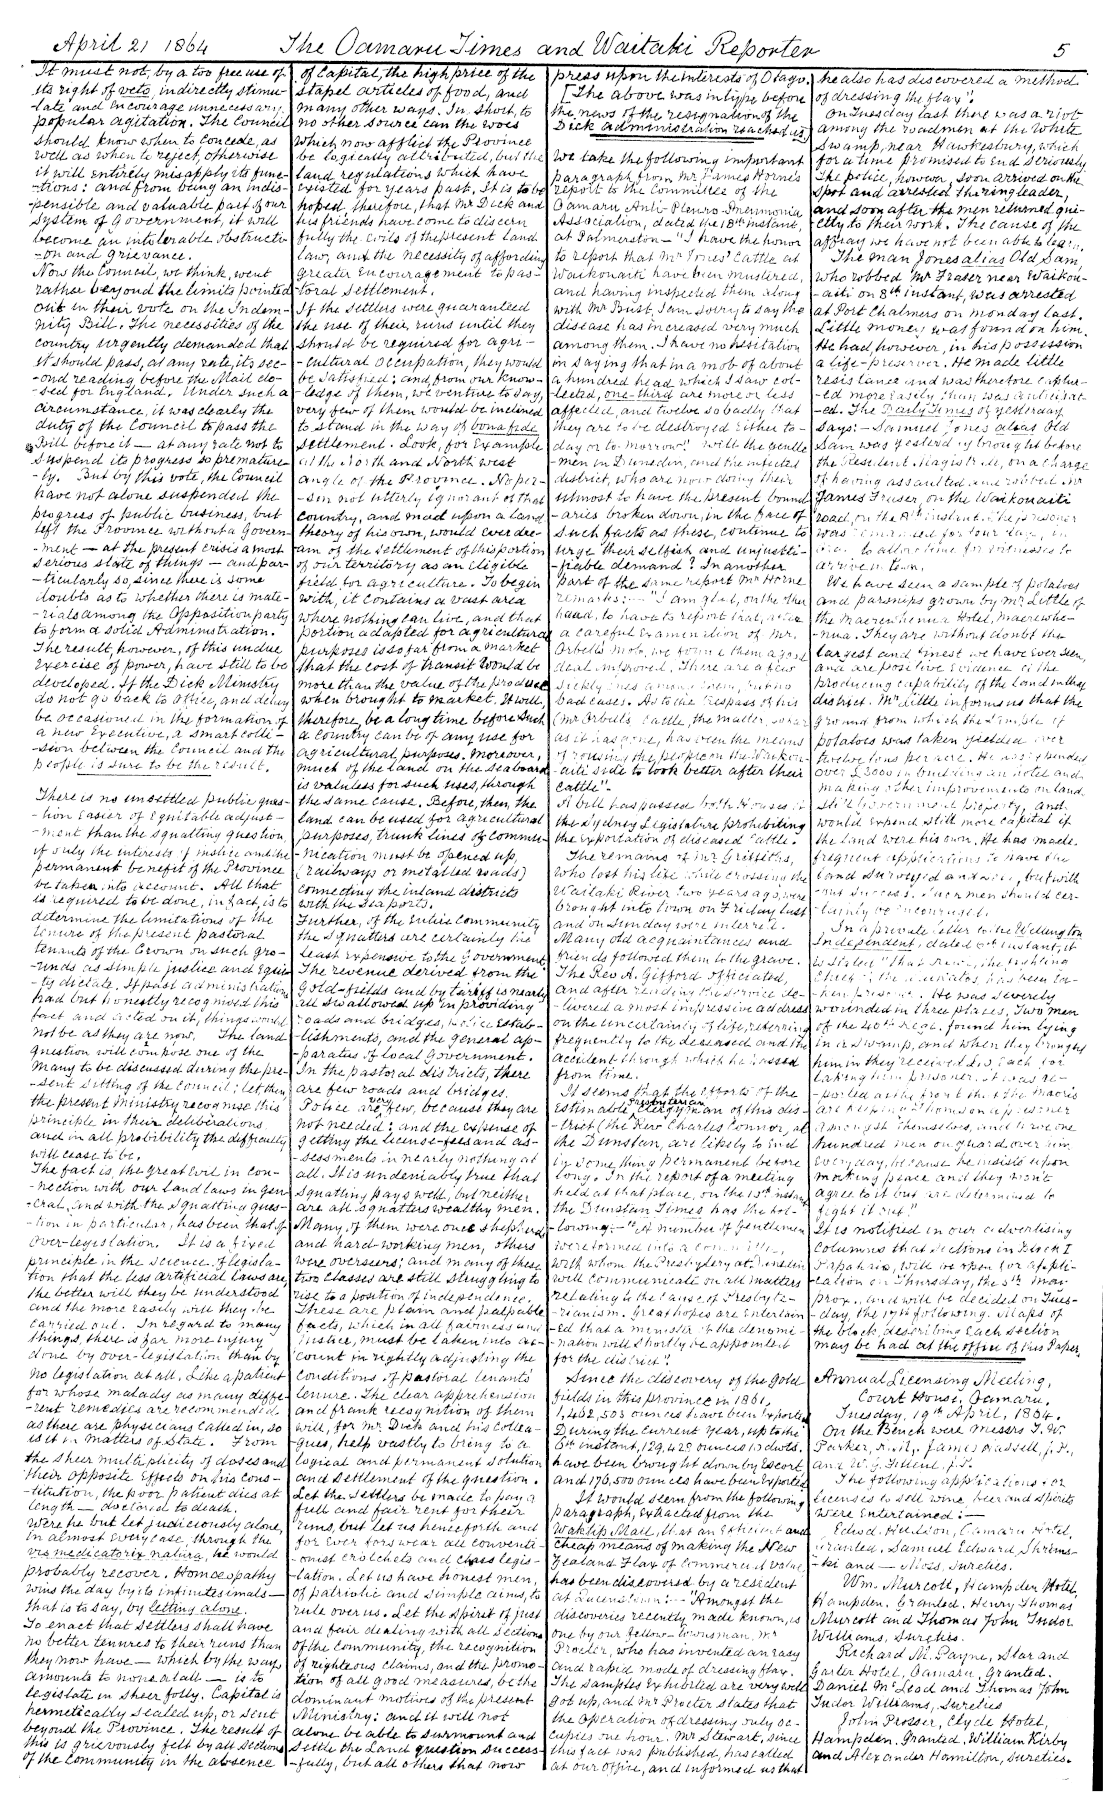 April 21 1864 The Oamaru Times and Waitaki Reporter 5
It must not, by a too free use of
its right of veto, indirectly stimu-
late and encourage unnecessary
popular agitation. The Council
should know when to concede, as
well as when to reject, otherwise
it will entirely misapply its func-
-tions: and from being an indis-
pensible and valuable part of our
system of Government, it will
become an intolerable obstructi-
-on and grievance.
Now the Council, we think, went
rather beyond the limits pointed
out in their vote on the Indem-
nity Bill. The necessities of the
country urgently demanded that
it should pass, at any rate, its sec-
-ond reading before the Mail clo-
-sed for England. Under such a
circumstance, it was clearly the
duty of the Council to pass the
Bill before it — at any rate not to
suspend its progress so premature-
-ly. But by this vote, the Council
have not alone suspended the
progress of public business, but
left the Province without a Govern-
-ment — at the present crisis a most
serious state of things — and par-
-ticularly so, since there is some
doubts as to whether there is mate-
-rials among the Opposition party
to form a solid Administration.
The result, however, of this undue
exercise of power, have still to be
developed. If the Dick Ministry
do not go back to office, and delay
be occasioned in the formation of
a new Executive, a smart colli-
-sion between the Council and the
people is sure to be the result.
There is no unsettled public ques-
-tion easier of equitable adjust-
-ment than the squatting question
if only the interests of justice and the
permanent benefit of the Province
be taken into account. All that
is required to be done, in fact, is to
determine the limitations of the
tenure of the present pastoral
tenants of the Crown on such gro-
-unds as simple justice and Equi-
-ty dictate. If past administrations
had but honestly recognised this
fact and acted on it, things would
not be as they are now. The land
question will compose one of the
many to be discussed during the pre-
-sent sitting of the Council: let then
the present Ministry recognise this
principle in their deliberations
and in all probibility the difficulty
will cease to be.
The fact is, the great Evil in con-
-nection with our land laws in gen-
-eral, and with the squatting ques-
-tion in particular, has been that of
over-legislation. It is a fixed
principle in the science of legisla-
tion that the less artificial laws are,
the better will they be understood
and the more easily will they be
carried out. In regard to many
things, there is far more injury
done by over-legislation than by
no legislation at all. Like a patient
for whose malady as many diffe-
-rent remedies are recommended
as there are physicians called in, so
is it in matters of State. From
the sheer multiplicity of doses and
their opposite effects on his cons-
-titution, the poor patient dies at
length — doctored to death.
Were he but let judiciously alone,
in almost every case, through the
vis medicatrix natura, he would
probably recover. Homoeopathy
wins the day by its infinitesimals —
that is to say, by letting alone.
To enact that settlers shall have
no better tenures to their runs than
they now have — which by the ways
amounts to none at all — is to
legislate in sheer folly. Capital is
hermetically sealed up, or sent
beyond the Province. The result of
this is grievously felt by all sections
of the Community in the absence
of Capital, the high price of the
stapel articles of food, and
many other ways. In short, to
no other source can the woes
which now afflict the Province
be logically attributed, but the
land regulations which have
existed for years past. It is to be
hoped, therefore, that Mr Dick and
his friends have come to discern
fully the evils of the present land
law, and the necessity of affording
greater encouragement to pas-
-toral settlement.
If the settlers were guaranteed
the use of their runs until they
should be required for agri-
-cultural occupation, they would
be satisfied; and from our know-
-ledge of them, we venture to say,
very few of them would be inclined
to stand in the way of bona fide
settlement. Look, for Example
at the North and North west
angle of the Province. No per-
-son not utterly ignorant of that
country, and mad upon a land
theory of his own, would ever dre-
am of the settlement of this portion
of our territory as an eligible
field for agriculture. To begin
with, it contains a vast area
where nothing can live, and that
portion adapted for agricultural
purposes is so far from a market
that the cost of transit would be
more than the value of the produce
when brought to market. It will,
therefore, be a long time before such
a country can be of any use for
agricultural purposes. Moreover,
much of the land on the seaboard
is valuless for such uses, through
the same cause. Before, then, the
land can be used for agricultural
purposes, trunk lines of commu-
-nication must be opened up,
(railways or metalled roads)
connecting the inland districts
with the Seaports.
Further, of the entire community
the squatters are certainly the
least expensive to the Government
The revenue derived from the
gold-fields and by tariff is nearly
all swallowed up in providing
roads and bridges, police Estab-
-lishments, and the general ap-
-paratus of local Government.
In the pastoral districts, there
are few roads and bridges.
Police are very few, because they are
not needed; and the expense of
getting the license-fees and as-
-sessments in nearly nothing at
all. It is undeniably true that
squatting pays well, but neither
are all squatters wealthy men.
Many of them were once shepherds
and hard-working men, others
were overseers; and many of these
two classes are still struggling to
rise to a position of independence.
These are plain and palpable
facts, which in all fairness and
justice, must be taken into ac-
count in rightly adjusting the
conditions of pastoral tenants'
tenure. The clear apprehension
and frank recognition of them
will, for Mr Dick and his collea-
gues, help vastly to bring to a
logical and permanent solution
and settlement of the question.
Let the settlers be made to pay a
full and fair rent for their
runs, but let us henceforth and
for ever forswear all conventi-
-onist crotchets and class legis-
-lation. Let us have honest men,
of patriotic and simple aims, to
rule over us. Let the spirit of just
and fair dealing with all sections
of the community, the recognition
of righteous claims, and the promo-
tion of all good measures, be the
dominant motives of the present
Ministry: and it will not
alone be able to surmount and
settle the Land question success-
-fully, but all others that now
press upon the interests of Otago.
[The above was in type before
the news of the resignation of the
Dick administration reached us]
We take the following important
paragraph from Mr James Horne's
report to the Committee of the
Oamaru Anti-Pleuro-Pneumonia
Association, dated the 18th instant,
at Palmerston — "I have the honor
to report that Mr Jones' Cattle at
Waikouaiti have been mustered,
and having inspected them along
with Mr Trust, I am sorry to say the
disease has increased very much
among them. I have no hesitation
in saying that in a mob of about
a hundred head which I saw col-
-lected, one-third are more or less
affected, and twelve so badly that
they are to be destroyed either to-
day or to-morrow." Will the gentle
-men in Dunedin, and the infected
district, who are now doing their
utmost to have the present bound-
-aries broken down, in the face of
such facts as these, continue to
urge their selfish and unjusti-
-fiable demand? In another
part of the same report Mr Horne
remarks: — "I am glad, on the other
hand, to have to report that, after
a careful examination of Mr.
Orbell's mob, we found them a good
deal improved. There are a few
sickly ones among them, but no
bad cases. As to the trespass of his
(Mr Orbell's) Cattle, the matter, so far
as it has gone, has been the means
of rousing the people on the Waikou-
-aiti side to look better after their
cattle".
A bill has passed both Houses of
the Sydney Legislature prohibiting
the exportation of diseased Cattle.
The remains of Mr Griffiths,
who lost his life while crossing the
Waitaki River two years ago, were
brought into town on Friday last
and on Sunday were interred.
Many old acquaintances and
friends followed them to the grave.
The Rev A. Gifford officiated,
and after reading the service de-
-livered a most impressive address
on the uncertainty of life, referring
frequently to the deceased and the
accident through which he passed
from time.
It seems that the efforts of the
Estimable Presbyterian Clergyman of this dis-
-trict (the Rev Charles Connor, at
the Dunstan, are likely to End
in something permanent before
long. In the report of a meeting
held at that place, on the 13th instant
the Dunstan Times has the fol-
-lowing: — "A number of Gentlemen
were formed into a committee,
with whom the Presbytery at Dunedin
will communicate on all matters
relating to the cause of Presbyte-
-rianism. Great hopes are Entertain-
-ed that a minister of the denomi-
-nation will shortly be appointed
for the district".
Since the discovery of the gold
fields in this province in 1861,
1,462,503 ounces have been Exported
During the current year, up to the
6th instant, 129,428 ounces 10 dwts.
have been brought down by Escort
and 176,500 ounces have been Exported
It would seem from the following
paragraph, extracted from the
Wakatip Mail, that an Efficient and
cheap means of making the New
Zealand Flax of commercial value,
has been discovered by a resident
at Queenstown: — "Amongst the
discoveries recently made known, is
one by our fellow-townsman, Mr
Procter, who has invented an easy
and rapid mode of dressing flax.
The samples exhibited are very well
got up, and Mr Procter states that
the operation of dressing only oc-
cupies one hour. Mr Stewart, since
this fact was published, has called
at our office, and informed us that
he also has discovered a method
of dressing the flax".
On Tuesday last there was a riot
among the roadmen at the White
Swamp, near Hawkesbury, which
for a time promised to end seriously
The police, however, soon arrived on the
spot and arrested the ringleader,
and soon after the men returned qui-
etly to their work. The cause of the
affray we have not been able to learn.
The man Jones alias Old Sam,
who robbed Mr Fraser near Waikou-
-aiti on 8th instant, was arrested
at Port Chalmers on monday last.
Little money was found on him.
He had however, in his possession
a life-preserver. He made little
resistance and was therefore captur-
-ed more easily than was anticipat-
-ed. The Daily Times of yesterday
says: — Samuel Jones alias Old
Sam was yesterday brought before
the Resident Magistrate, on a charge
of having assaulted and robbed Mr
James Fraser, on the Waikouaiti
road, on the 8th instant. The prisoner
was remanded for four days, in
order to allow time for witnesses to
arrive in town.
We have seen a sample of potatoes
and parsnips grown by Mr Little of
the Maerewhenua Hotel, Maerewhe-
-nua. They are without doubt the
largest and finest we have ever seen,
and are positive evidence of the
producing capability of the land in this
district. Mr Little informs us that the
ground from which the sample of
potatoes was taken yielded over
twelve tons per acre. He has expended
over £3000 in building an hotel and
making other improvements on land
still Government property, and
would expend still more capital if
the land were his own. He has made
frequent applications to have the
land surveyed and sold, but with-
-out success. Such men should cer-
-tainly be encouraged.
In a private letter to the Wellington
Independent, dated 6th instant, it
is stated "that Rewi, the fighting
Chief of the Waikatos, has been ta-
-ken prisoner. He was severely
wounded in three places, Two men
of the 40th Regt. found him lying
in a swamp, and when they brought
him in they received £25 each for
taking him prisoner. It was re-
-ported at the front that the Maoris
are keeping Thomson a prisoner
amongst themselves, and have one
hundred men on guard over him
every day, because he insists upon
making peace and they won't
agree to it but are determined to
fight it out."
It is notified in our advertising
columns that sections in Block I
Papakaio, will be open for appli-
-cation on Thursday, the 5th May
prox., and will be decided on Tues-
-day, the 17th following. Maps of
the block, describing each section
may be had at the office of this Paper.
Annual Licensing Meeting,
Court House, Oamaru.
Tuesday, 19th April, 1864.
On the Bench were Messrs T. W.
Parker, R.M., James Hassell, J.P.,
and W. G. Filleul, J.P.
The following applications for
licenses to sell wine, beer and spirits
were Entertained: —
Edwd. Hudson, Oamaru Hotel,
Granted. Samuel Edward Shrims-
-ki and — Moss, Sureties.
Wm. Murcott, Hampden Hotel,
Hampden. Granted. Henry Thomas
Murcott and Thomas John Tudor
Williams, Sureties.
Richard M. Payne, Star and
Garter Hotel, Oamaru, Granted.
Daniel McLead and Thomas John
Tudor Williams, Sureties
John Prosser, Clyde Hotel,
Hampden. Granted. William Kirby
and Alexander Hamilton, Sureties.